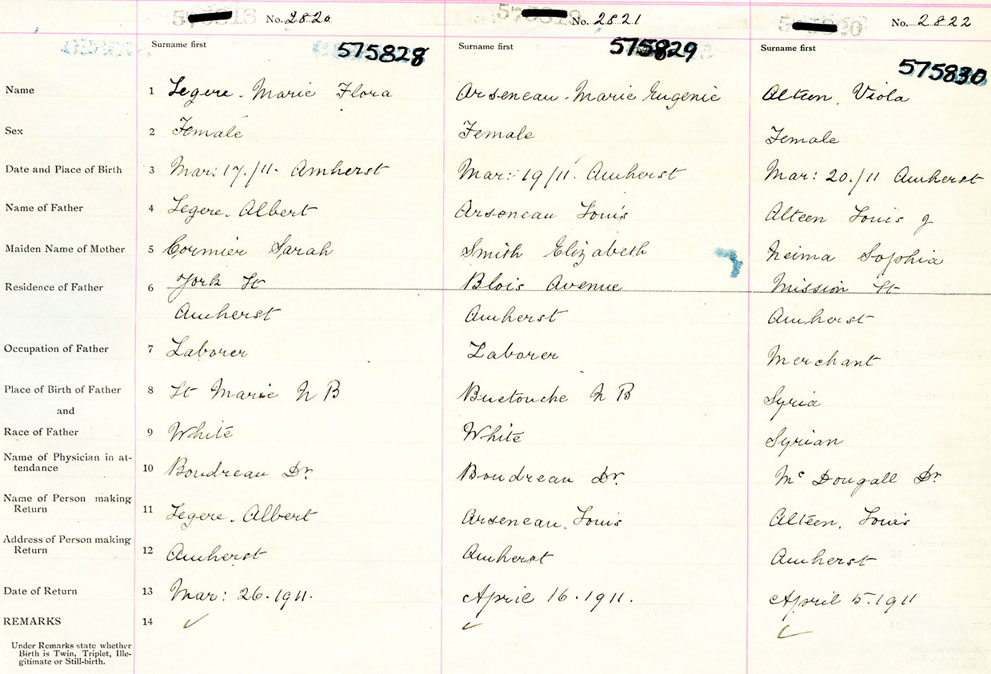 No. 2820 No. 2821 No. 2822
Surname first 575828 Surname first 575829 Surname first 575830
Name 1 Legere. Marie Flora Arseneau. Marie Eugenie Alteen, Viola
Sex 2 Female Female Female
Date and Place of Birth 3 Mar: 17./11. Amherst Mar: 19/11. Amherst Mar: 20./11 Amherst
Name of Father 4 Legere. Albert Arseneau Louis Alteen Louis g
Maiden Name of Mother 5 Cormier Sarah Smith Elizabeth Neima Sophia
Residence of Father 6 York St Blois Avenue Mission St
Amherst Amherst Amherst
Occupation of Father 7 Laborer Laborer Merchant
Place of Birth of Father 8 St Marie N B Buctouche N B Syria
and
Race of Father 9 White White Syrian
Name of Physician in at-
tendance 10 Boudreau Dr. Boudreau Dr. Mc Dougall Dr.
Name of Person making
Return 11 Legere. Albert Arseneau. Louis Alteen. Louis
Address of Person making
Return 12 Amherst Amherst Amherst
Date of Return 13 Mar: 26.1911. April 16.1911. April 5.1911
REMARKS 14 ✓ ✓ ✓
Under Remarks state whether
Birth is Twin, Triplet, Ille-
gitimate or Still-birth.